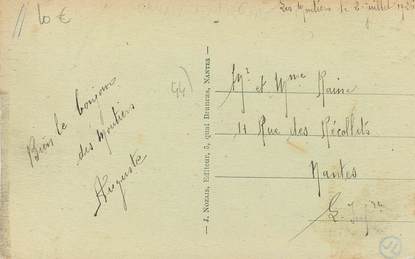 10 €
Les Moutiers le 2 juillet
44)
Bien le bonjour
des Moutiers
Auguste
— J. NOZAIS, Editeur, 5, quai Brancas, NANTES —
Mr et Mme Raine
11 Rue des Récollets
Nantes
L. Infre
JL